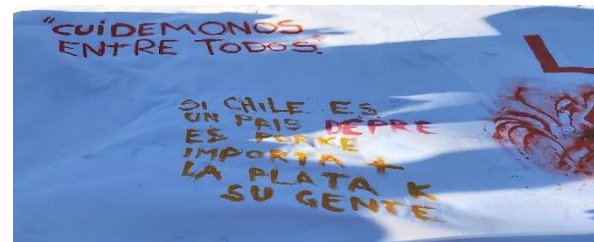 "CUÍDEMONOS
ENTRE TODOS."
SI CHILE ES
UN PAIS DEPRE
ES PORKE
IMPORTA +
LA PLATA K
SU GENTE